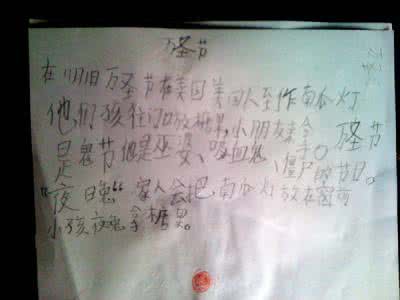 万圣节
在11月1日万圣节在美国美国人至作南瓜灯
他们孩往门口放糖果,小朋友拿手。万圣节
是鬼节他是巫婆、吸血鬼、僵尸的节日。
"夜晚" 家人会把南瓜灯放在窗前
小孩夜晚拿糖果。